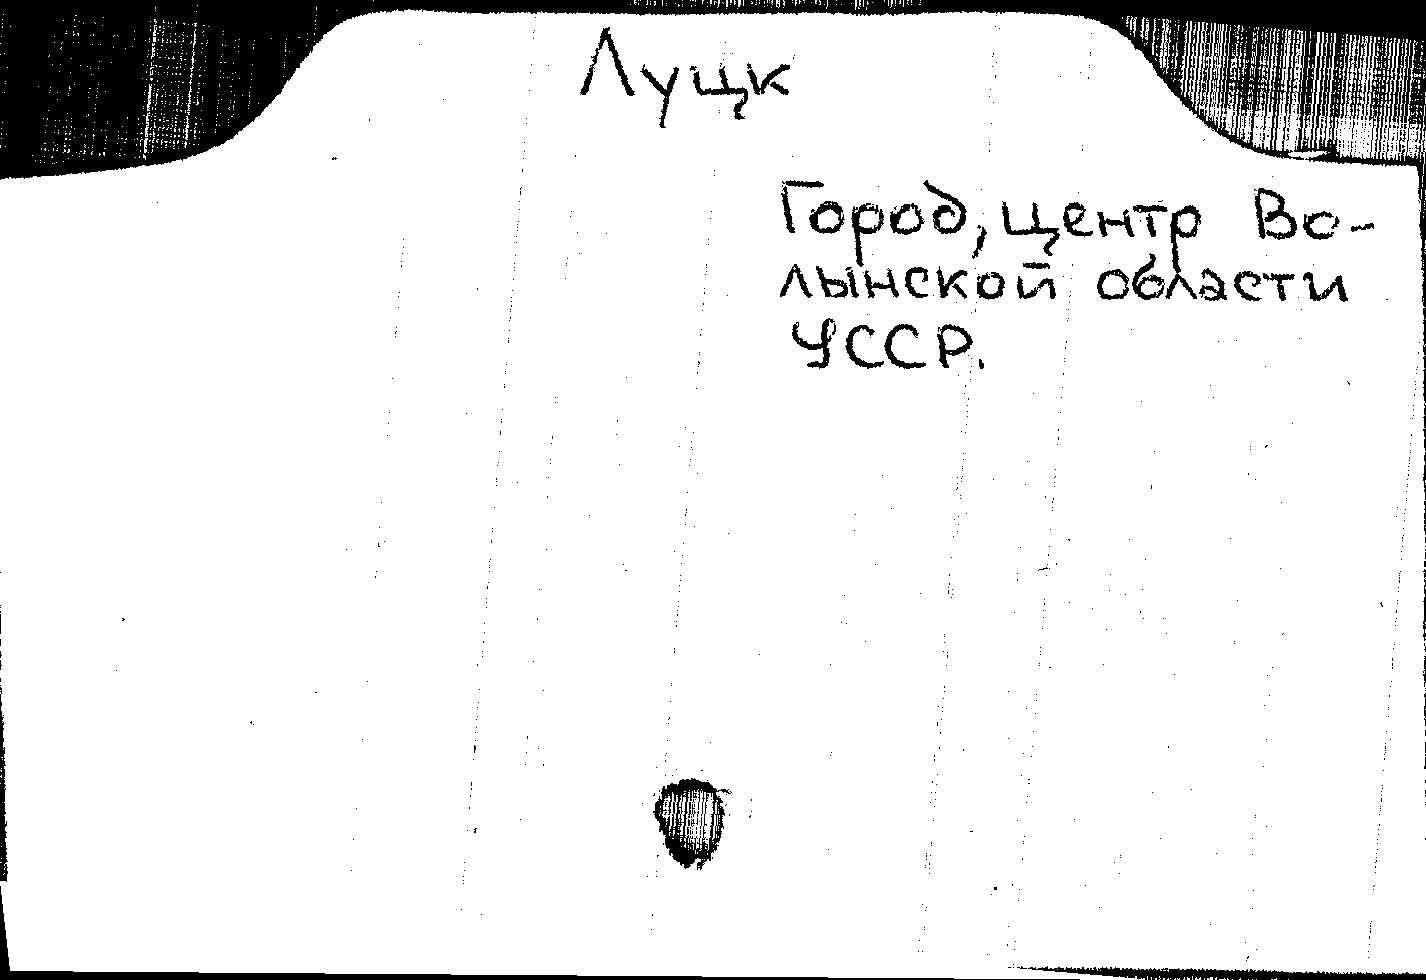 Луцк
Город, центр Во-
лынской области
УССР.